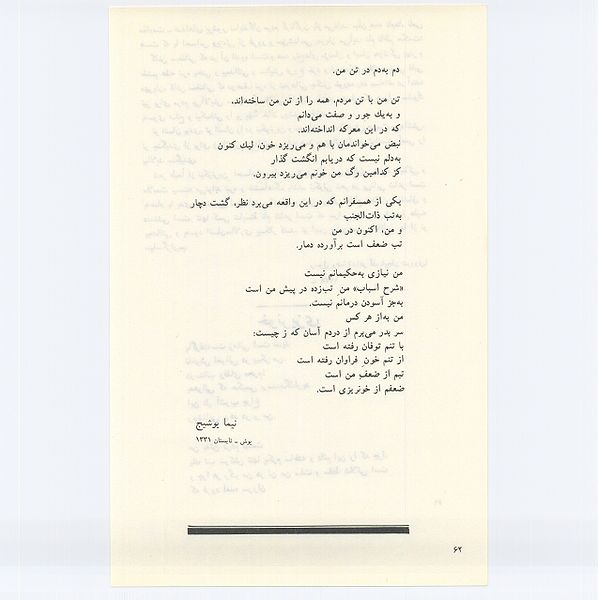 دم به‌دم در تن من.
تن من با تن مردم، همه را از تن من ساخته‌اند،
و به‌یك جور و صفت می‌دانم
که در این معرکه انداخته‌اند.
نبض می‌خواندمان با هم و می‌ریزد خون، لیك كنون
به‌دلم نیست که دریابم انگشت گذار
کز کدامین رگ من خونم می‌ریزد بیرون.
یکی از همسفرانم که در این واقعه می‌برد نظر، گشت دچار
به‌تب ذات‌الجنب
و من، اکنون در من
تب ضعف است برآورده دمار.
من نیازی به‌حکیمانم نیست
«شرح اسباب» من ِ تب‌زده در پیش من است
به‌جز آسودن درمانم نیست.
من به‌از هر کس
سر بدر می‌برم از دردم آسان که ز چیست:
با تنم توفان رفته است
از تنم خون ِ فراوان رفته است
تبم از ضعف من است
ضعفم از خونریزی است.
نیما یوشیج
یوش ـ تابستان ۱۳۳۱
۶۲